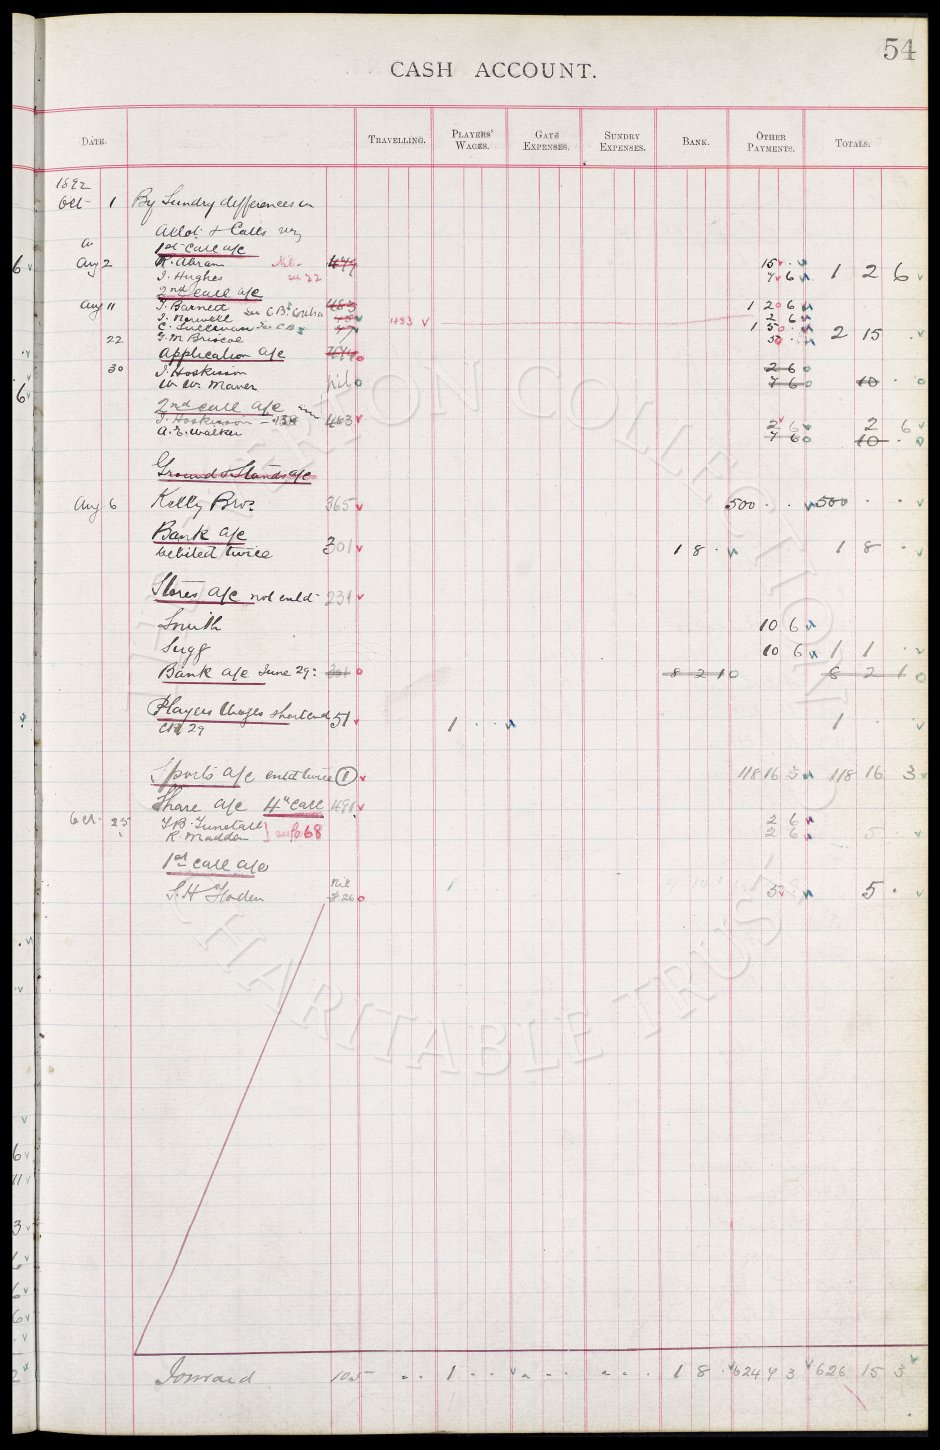 54
CASH ACCOUNT.
DATE. TRAVELLING. PLAYERS' WAGES. GATE EXPENSES. SUNDRY EXPENSES. BANK. OTHER PAYMENTS. TOTALS.
1892
Oct 1 By Sundry differences in
Allot & Calls viz
1st call a/c
Aug 2 R. Abram 479 15 . 
J. Hughes see 22 7 6 1 2 6
2nd call a/c
Aug 11 J. Barnett See C.B. Contra 483 1 2 6
J. Maxwell 2 6
C. Sullivan See C.B. 483 1 5 .
22 G. M. Briscoe 5 . 2 15 .
Application a/c
30 J. Hoskisson 2 6
W. W. Mawer nil 7 6 10 .
2nd call a/c
J. Hoskisson 483 2 6 2 6
A. E. Walker 7 6 10 .
Ground & Stands a/c
Aug 6 Kelly Bros 365 500 . . 500 . .
Bank a/c
debited twice 301 1 8 . 1 8 .
Stores a/c not entd 231
Smith 10 6
Sugg 10 6 1 1 .
Bank a/c June 29: 301 8 2 1 8 2 1
Players Wages short entd 51 1 . . 1 . .
29
Sports a/c entd twice 1 118 16 3 118 16 3
Share a/c 4th call 491
Oct 25 J. B. Tunstall 2 6
R. Madden see fo 68 2 6 5 .
1st call a/c
Nil
S. H. Hoden F. 26 5 . 5 .
Forward 105 . . 1 . . . . . . . . 1 8 . 624 7 3 626 15 3
THE EVERTON COLLECTION CHARITABLE TRUST